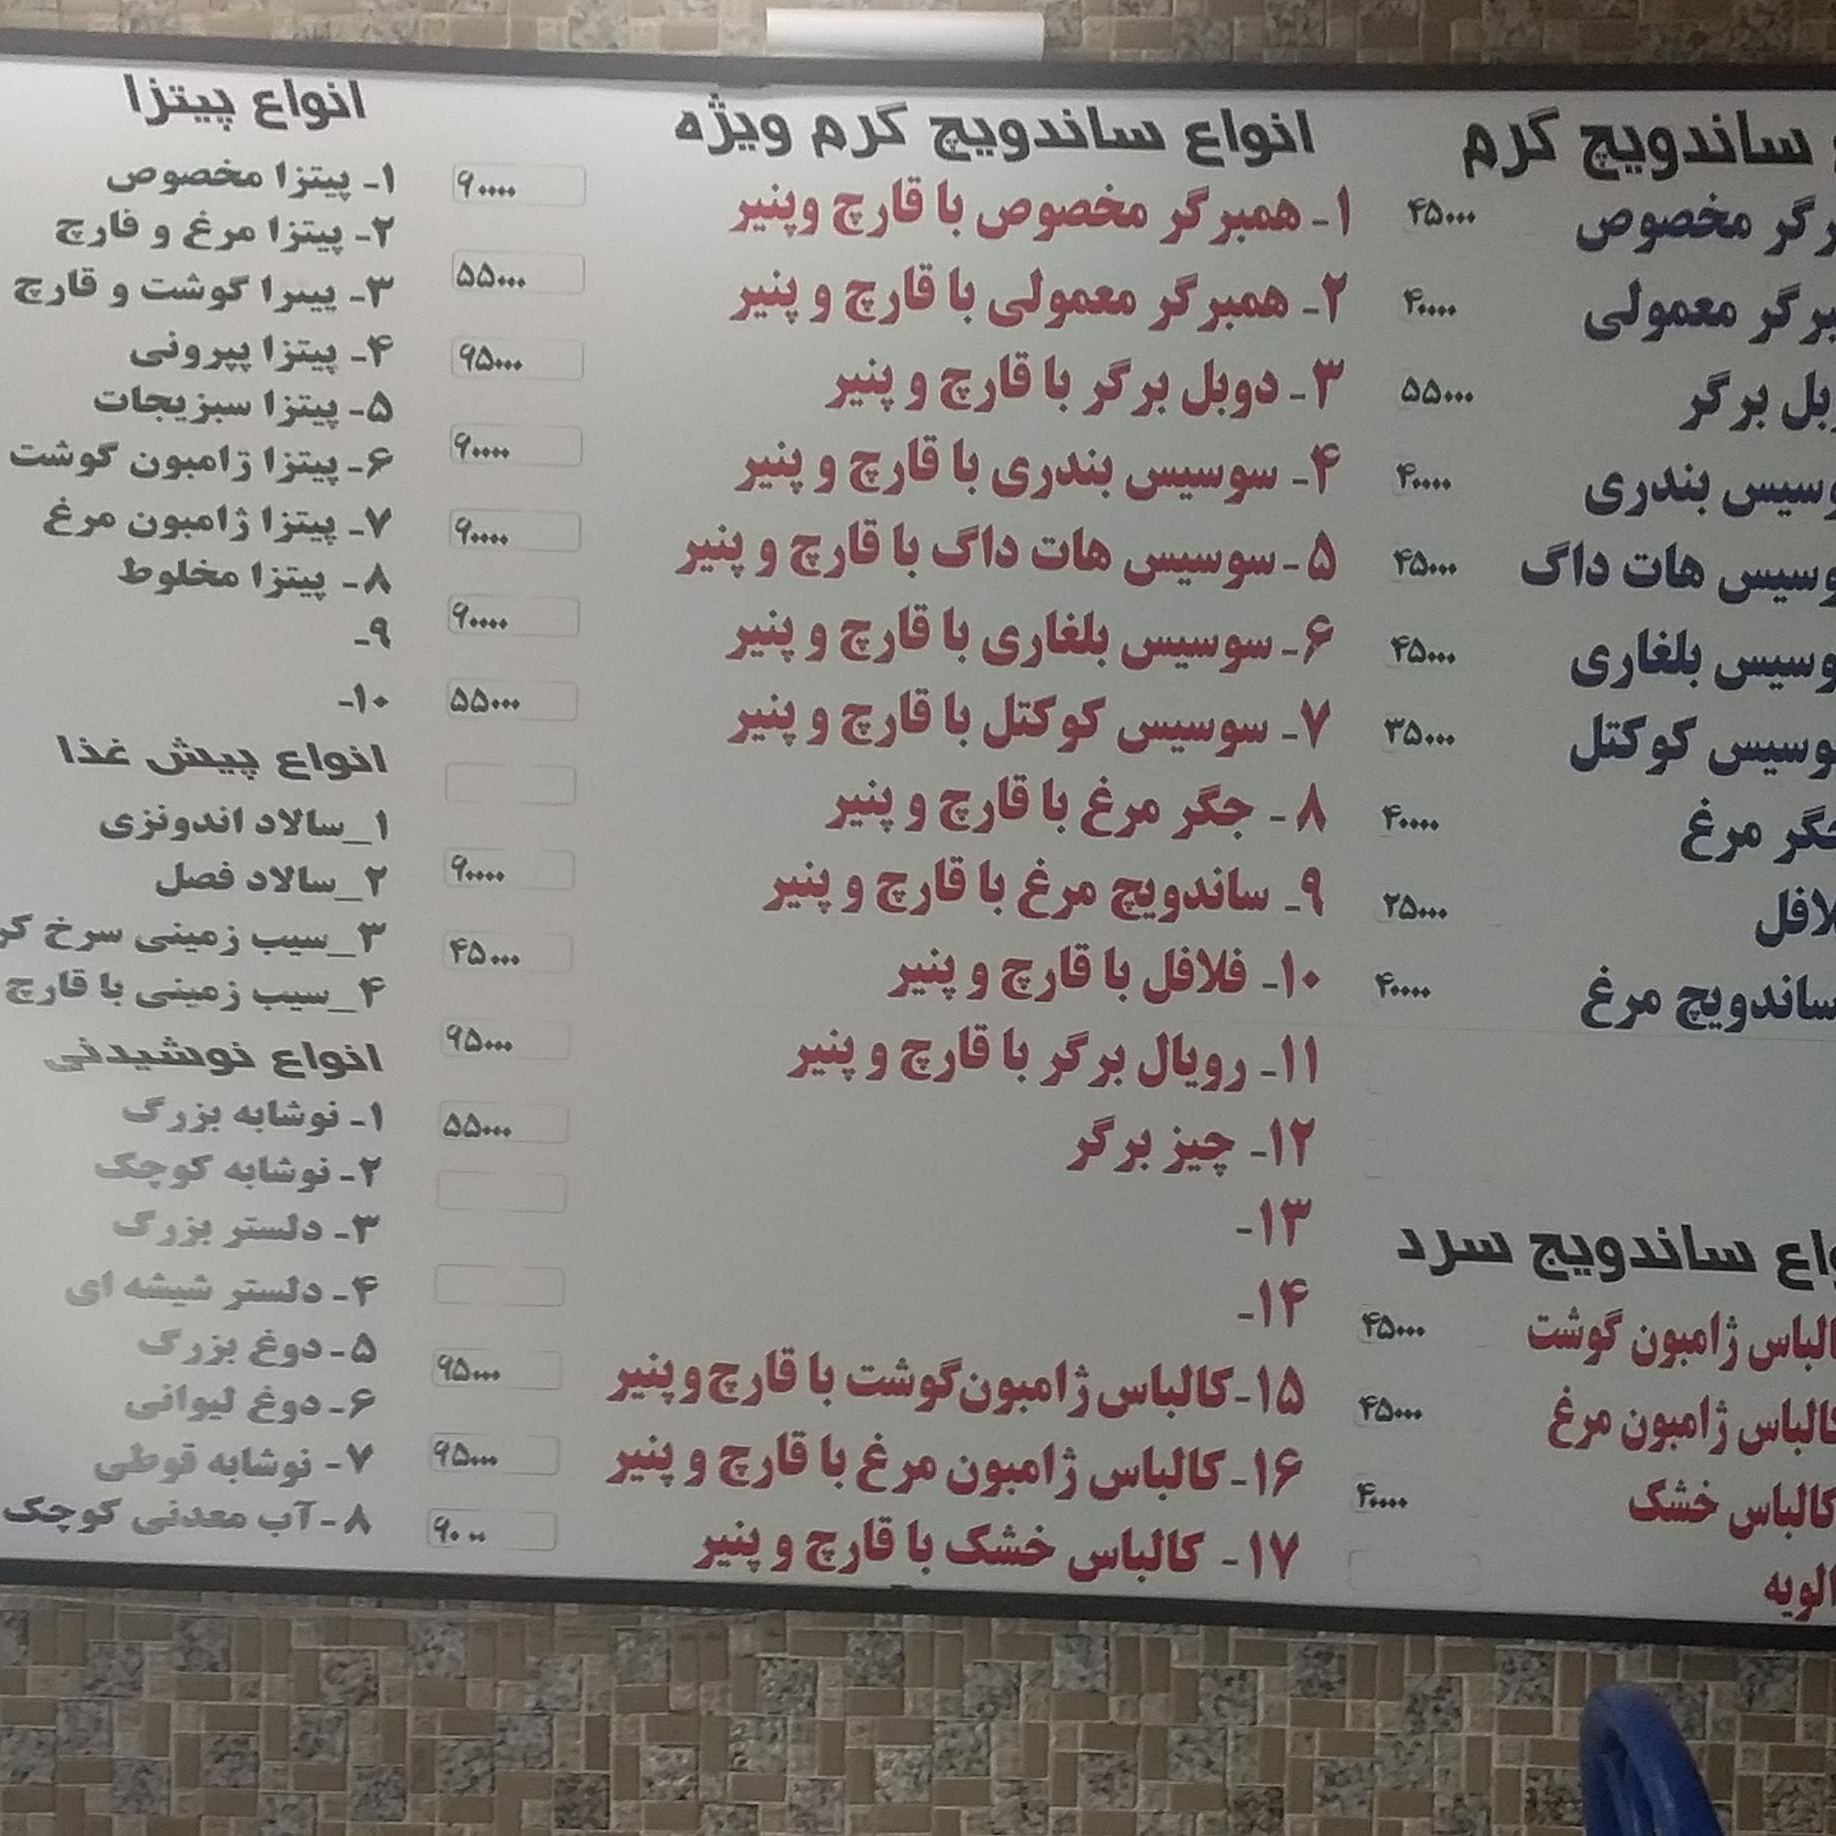 ساندویچ گرم
مخصوص ۴۵۰۰۰
معمولی ۴۰۰۰۰
برگر ۵۵۰۰۰
بندری ۴۰۰۰۰
هات داگ ۴۵۰۰۰
بلغاری ۴۵۰۰۰
کوکتل ۳۵۰۰۰
مرغ ۴۰۰۰۰
۲۵۰۰۰
ساندویچ مرغ ۴۰۰۰۰
ساندویچ سرد
ژامبون گوشت ۴۵۰۰۰
کالباس ژامبون مرغ ۴۵۰۰۰
کالباس خشک ۴۰۰۰۰
الویه
انواع ساندویچ گرم ویژه
۱- همبرگر مخصوص با قارچ وپنیر ۹۰۰۰۰
۲- همبرگر معمولی با قارچ و پنیر ۵۵۰۰۰
۳- دوبل برگر با قارچ و پنیر ۹۵۰۰۰
۴- سوسیس بندری با قارچ و پنیر ۹۰۰۰۰
۵- سوسیس هات داگ با قارچ و پنیر ۹۰۰۰۰
۶- سوسیس بلغاری با قارچ و پنیر ۹۰۰۰۰
۷- سوسیس کوکتل با قارچ و پنیر ۵۵۰۰۰
۸- جگر مرغ با قارچ و پنیر
۹- ساندویچ مرغ با قارچ و پنیر ۹۰۰۰۰
۱۰- فلافل با قارچ و پنیر ۴۵۰۰۰
۱۱- رویال برگر با قارچ و پنیر ۹۵۰۰۰
۱۲- چیز برگر ۵۵۰۰۰
۱۳-
۱۴-
۱۵-کالباس ژامبون‌گوشت با قارچ‌و‌پنیر ۹۵۰۰۰
۱۶-کالباس ژامبون مرغ با قارچ و پنیر ۹۵۰۰۰
۱۷- کالباس خشک با قارچ و پنیر ۹۰۰۰
انواع پیتزا
۱- پیتزا مخصوص
۲- پیتزا مرغ و قارچ
۳- پیتزا گوشت و قارچ
۴- پیتزا پپرونی
۵- پیتزا سبزیجات
۶- پیتزا ژامبون گوشت
۷- پیتزا ژامبون مرغ
۸- پیتزا مخلوط
۹-
۱۰-
انواع پیش غذا
۱_سالاد اندونزی
۲_سالاد فصل
۳_سیب زمینی سرخ
۴_سیب زمینی با قارچ
انواع نوشیدنی
۱- نوشابه بزرگ
۲- نوشابه کوچک
۳- دلستر بزرگ
۴- دلستر شیشه ای
۵- دوغ بزرگ
۶- دوغ لیوانی
۷- نوشابه قوطی
۸- آب معدنی کوچک